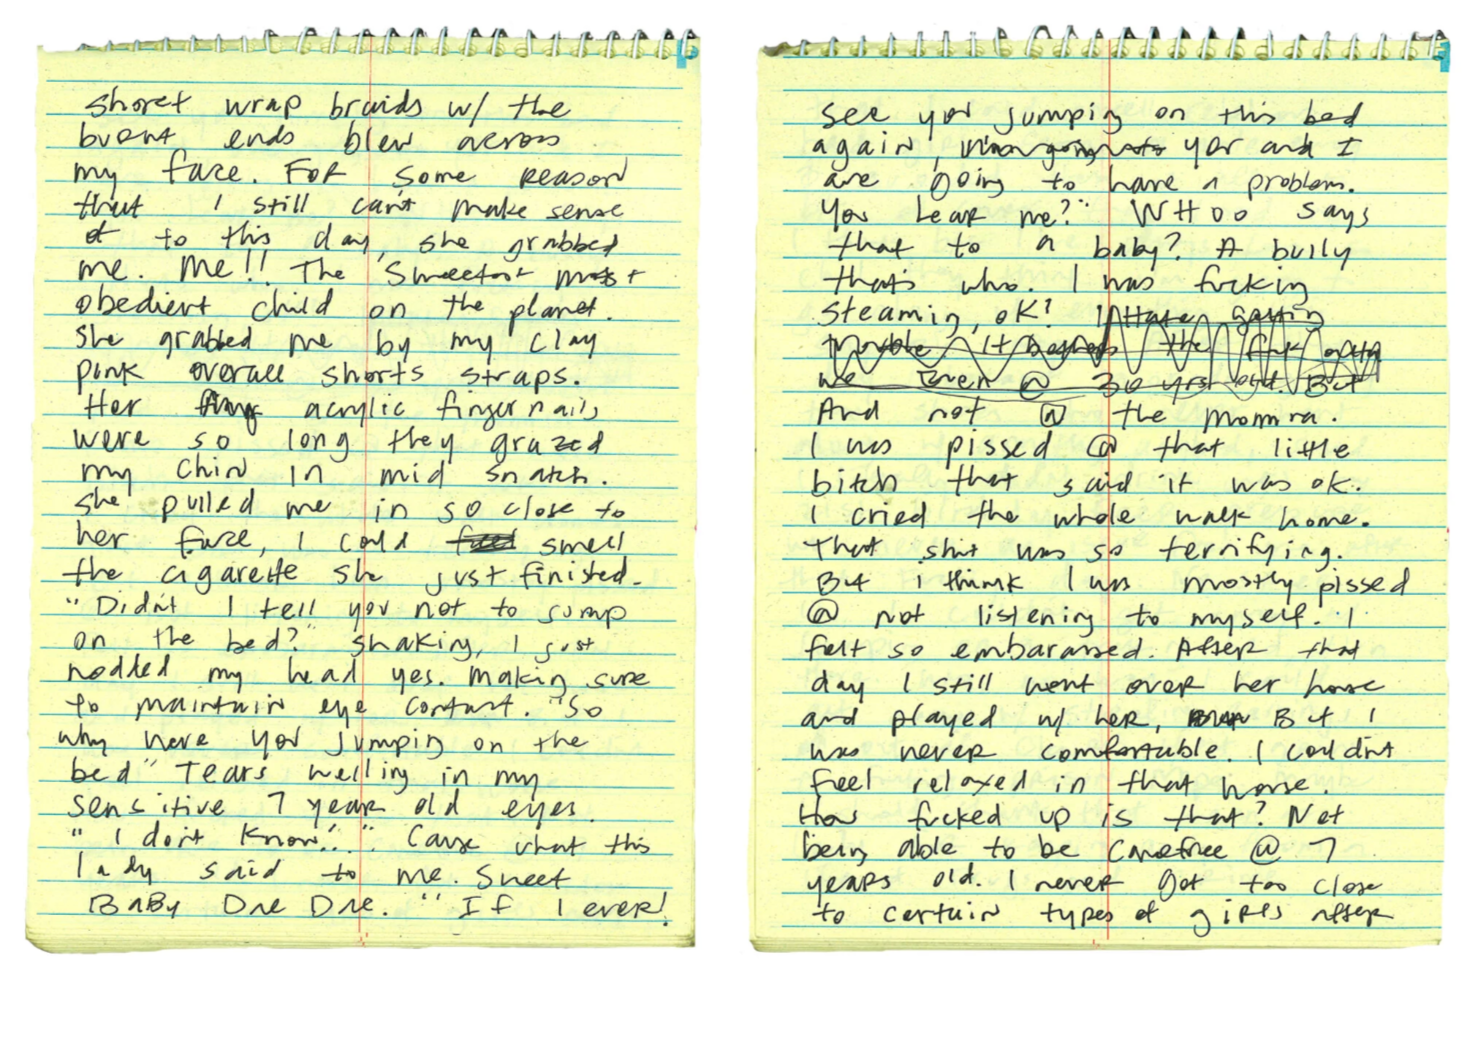 short wrap braids w/ the
burnt ends blew across
my face. For some reason
that I still can't make sense
of to this day, she grabbed
me. Me!! The Sweetest most
obedient child on the planet.
She grabbed me by my clay
pink overall shorts straps.
Her acrylic fingernails
were so long they grazed
my chin in mid snatch.
she pulled me in so close to
her face, I could smell
the cigarette she just finished.
"Didn't I tell you not to jump
on the bed?" shaking, I just
nodded my head yes. Making sure
to maintain eye contact. "So
why were you jumping on the
bed" Tears welling in my
sensitive 7 year old eyes.
"I don't know..." Cause what this
lady said to me. Sweet
BaBy Dre Dre. "If I ever!
see you jumping on this bed
again, you and I
are going to have a problem.
You hear me?" WHoo says
that to a baby? A bully
that's who. I was fucking
steaming, ok! I Hate getting
trouble It bothers the fuck outta
me Even @ 30 yrs old. But
And not @ the momma.
I was pissed @ that little
bitch that said it was ok.
I cried the whole walk home.
that shit was so terrifying.
But I think I was mostly pissed
@ not listening to myself. I
felt so embarassed. After that
day I still went over her house
and played w/ her, But I
was never comfortable. I couldn't
feel relaxed in that house.
How fucked up is that? Not
being able to be carefree @ 7
years old. I never got too close
to certain types of girls after